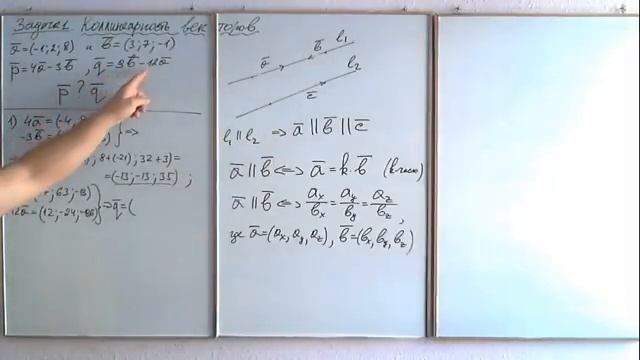 Задача 1. Коллинеарность векторов.
a̅=(-1;2;8) и b̅=(3;7;-1)
p̅=4a̅-3b̅, q̅=9b̅-12a̅
p̅ ? q̅
1) 4a̅=(-4;
-3b̅=
; 8+(-21); 32+3)=
=(-13;-13;35);
; 63; -9)
12a̅=(12;-24;-96) } ⇒ q̅=(
a̅ b̅ l₁
c̅ l₂
l₁ ∥ l₂ ⇒ a̅ ∥ b̅ ∥ c̅
a̅ ∥ b̅ ⇔ a̅ = k·b̅ (k-число)
a̅ ∥ b̅ ⇔ aₓ/bₓ = a_y/b_y = a_z/b_z,
где a̅=(aₓ, a_y, a_z), b̅=(bₓ, b_y, b_z)